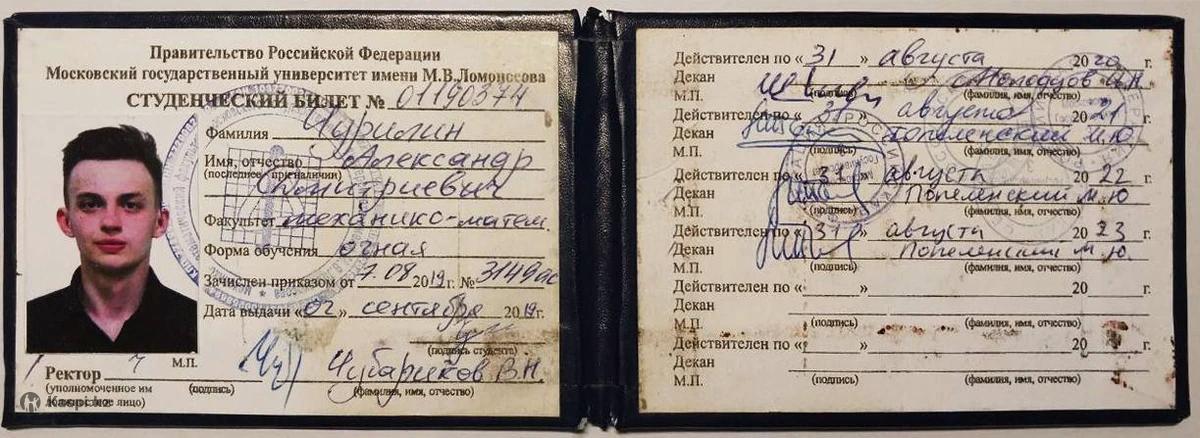 Правительство Российской Федерации
Московский государственный университет имени М.В.Ломоносова
СТУДЕНЧЕСКИЙ БИЛЕТ № 01190374
Фамилия Чурилин
Имя, отчество Александр
(последнее - при наличии)
Дмитриевич
Факультет механико-матем.
Форма обучения очная
Зачислен приказом от 7.08 2019 г. № 3149ас
Дата выдачи «02» сентября 2019г.
(подпись студента)
М.П.
Ректор Чубариков В.Н.
(уполномоченное им (подпись) (фамилия, имя, отчество)
должностное лицо)
Kaspi.kz
Действителен по «31» августа 2020 г.
Декан
М.П. (подпись) (фамилия, имя, отчество)
Действителен по «31» августа 2021 г.
Декан Попеленский М.Ю
М.П. (подпись) (фамилия, имя, отчество)
Действителен по «31» августа 2022 г.
Декан Попеленский М.Ю
М.П. (подпись) (фамилия, имя, отчество)
Действителен по «31» августа 2023 г.
Декан Попеленский М.Ю.
М.П. (подпись) (фамилия, имя, отчество)
Действителен по « » 20 г.
Декан
М.П. (подпись) (фамилия, имя, отчество)
Действителен по « » 20 г.
Декан
М.П. (подпись) (фамилия, имя, отчество)